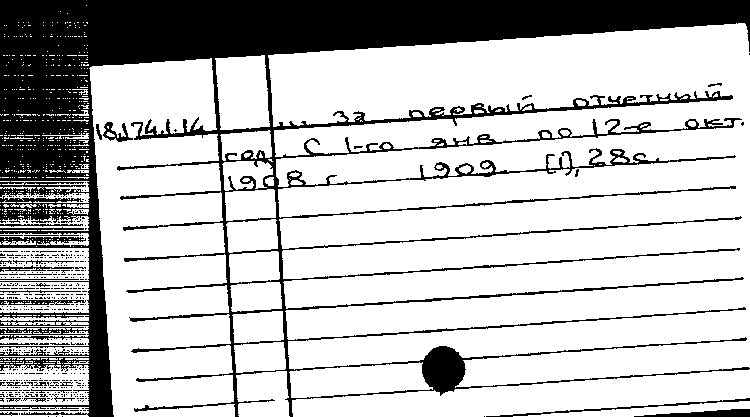 18.174.1.14 ... За первый отчетный
год. С 1-го янв по 12-е окт.
1908 г. 1909. [1], 28с.